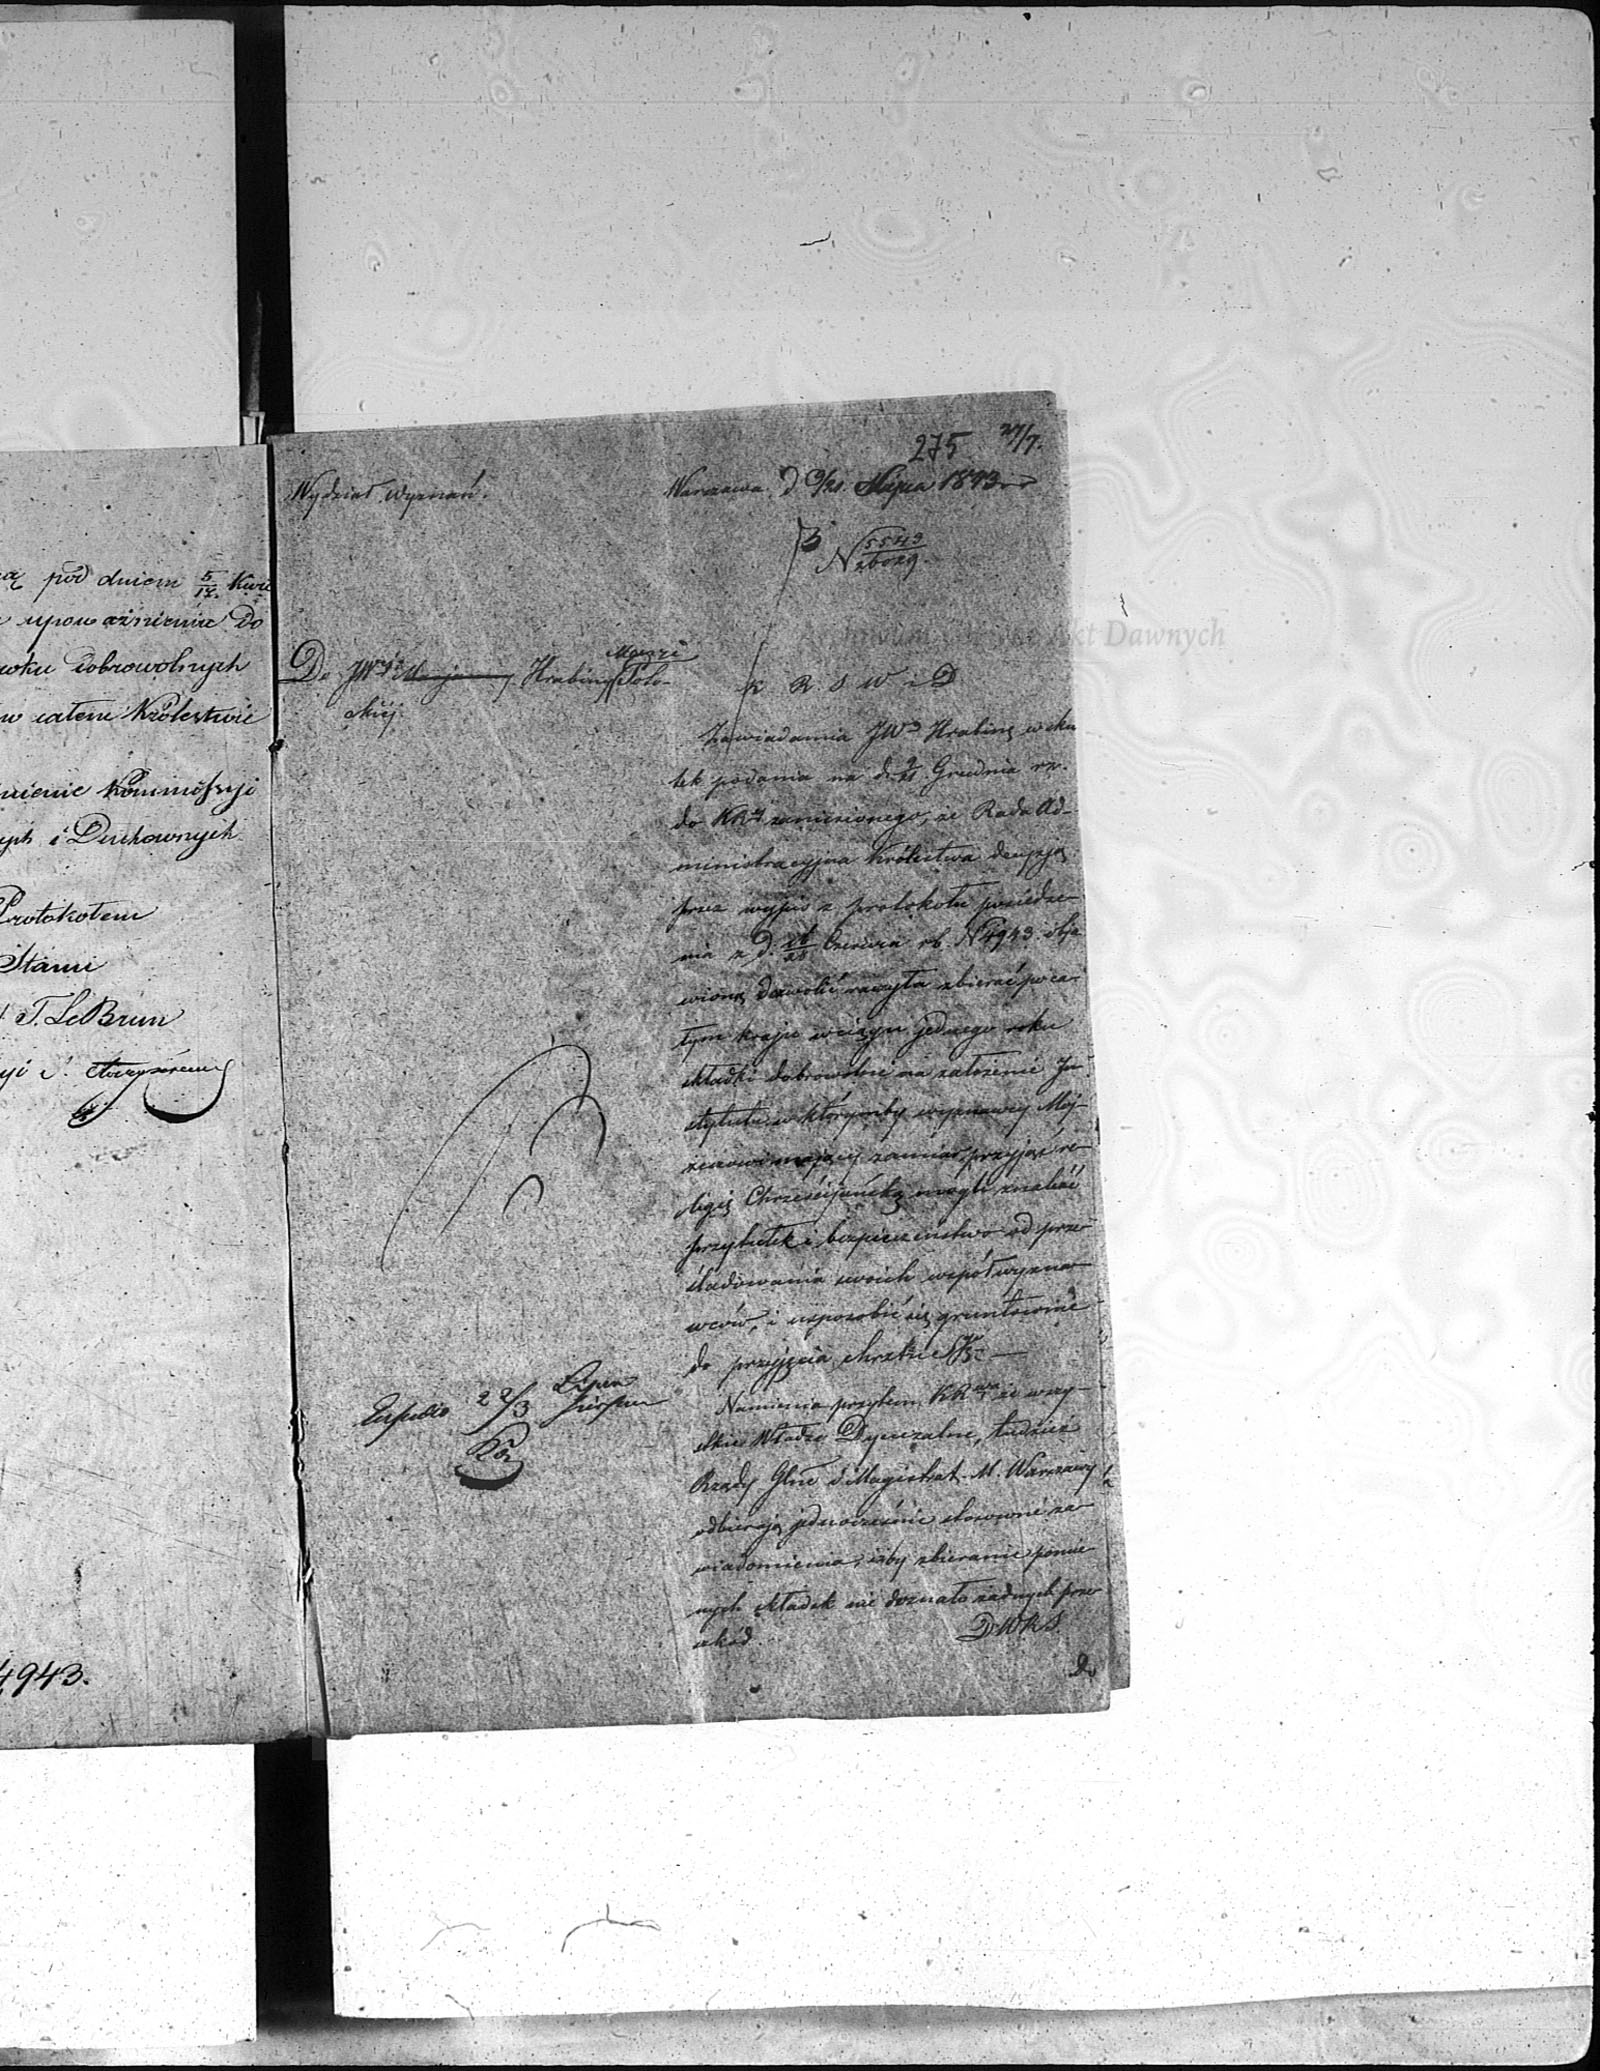 pod dniem 5/17. Kwie
upoważnienie Do
roku dobrowolnych
w całem Królestwie
Kommissyi
i Duchownych
Protokołem
Stanu
T. Le Brun
4943.
275 27/7.
Wydział Wyznań.
Warszawa d 9/21. Lipca 1843 r
N 5549/26029.
Maryi
Do JW Hrabiny Poto-
ckiej
K R S W i D
Zawiadamia JW Hrabinę wsku
tek podania na d. 9/21 Grudnia rz.
do KR zaniesionego, że Rada Ad-
ministracyjna Królestwa decyzją
przez wypis z protokołu posiedze-
nia z d. 16/28 Czerwca rb. N 4943 obja
wioną dozwolić raczyła zbierać po ca-
łym kraju w ciągu jednego roku
składki dobrowolne na założenie In-
stytutu w którymby wyznawcy Moj-
żeszowi mający zamiar przyjąć re-
ligię Chrześcijańską mogli znaleść
przytułek i bezpieczeństwo od prze-
śladowania swoich współwyzna-
wców, i usposobić się gruntownie
do przyjęcia chrztu
Namienia przytem KR że wszy-
stkie Władze Dyecezalne, tudzież
Rządy Glne i Magistrat M. Warszawy
odbierają jednocześnie stosowne za-
wiadomienia, iżby zbieranie pomie-
nych składek nie doznało żadnych prze-
szkód.
DWRS.
Do
Expedio 22/3 Lipca
Sierpnia